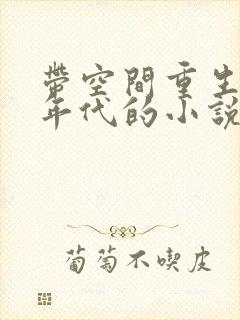 帶空間重生
年代的小說
葡萄不喫皮